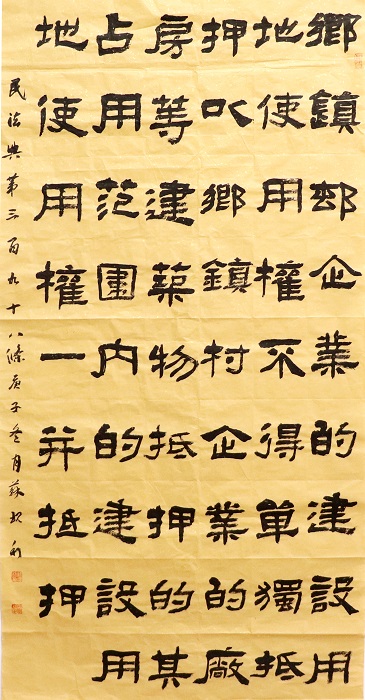 鄉鎮邨企業的建設用
地使用權不得單獨抵
押以鄉鎮村企業的廠
房等建築物抵押的其
占用范圍內的建設用
地使用權一并抵押
民法典第三百九十八條庚子冬月蘇